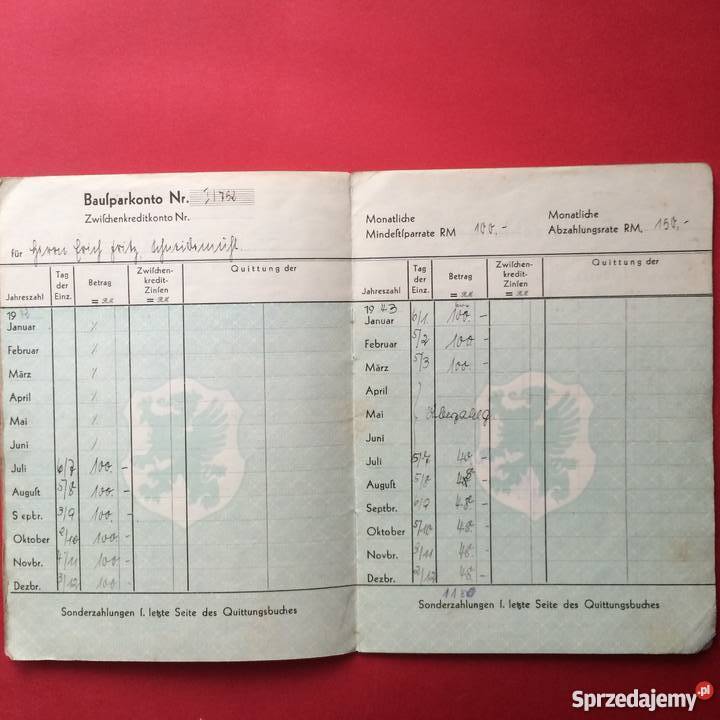 Bauſparkonto Nr. 31752
Zwiſchenkreditkonto Nr.
für Herrn Erich Fritz, Schneidemühl.
Jahreszahl Tag der Einz. Betrag = RM Zwiſchen-kredit-Zinſen = RM Quittung der
19
Januar
Februar
März
April
Mai
Juni
Juli 6/7 100.-
Auguſt 5/8 100.-
Septbr. 3/9 100.-
Oktober 2/10 100.-
Novbr. 4/11 100.-
Dezbr. 3/12 100.-
Sonderzahlungen ſ. letzte Seite des Quittungsbuches
Monatliche Mindeſtſparrate RM 100,-
Monatliche Abzahlungsrate RM. 150,-
Jahreszahl Tag der Einz. Betrag = RM Zwiſchen-kredit-Zinſen = RM Quittung der
1943
Januar 6/1 100.-
Februar 5/2 100.-
März 5/3 100.-
April
Mai
Juni
Juli 5/7 48.-
Auguſt 5/8 48.-
Septbr. 6/9 48.-
Oktober 5/10 48.-
Novbr. 3/11 48.-
Dezbr. 2/12 48.-
Sonderzahlungen ſ. letzte Seite des Quittungsbuches
Sprzedajemy.pl